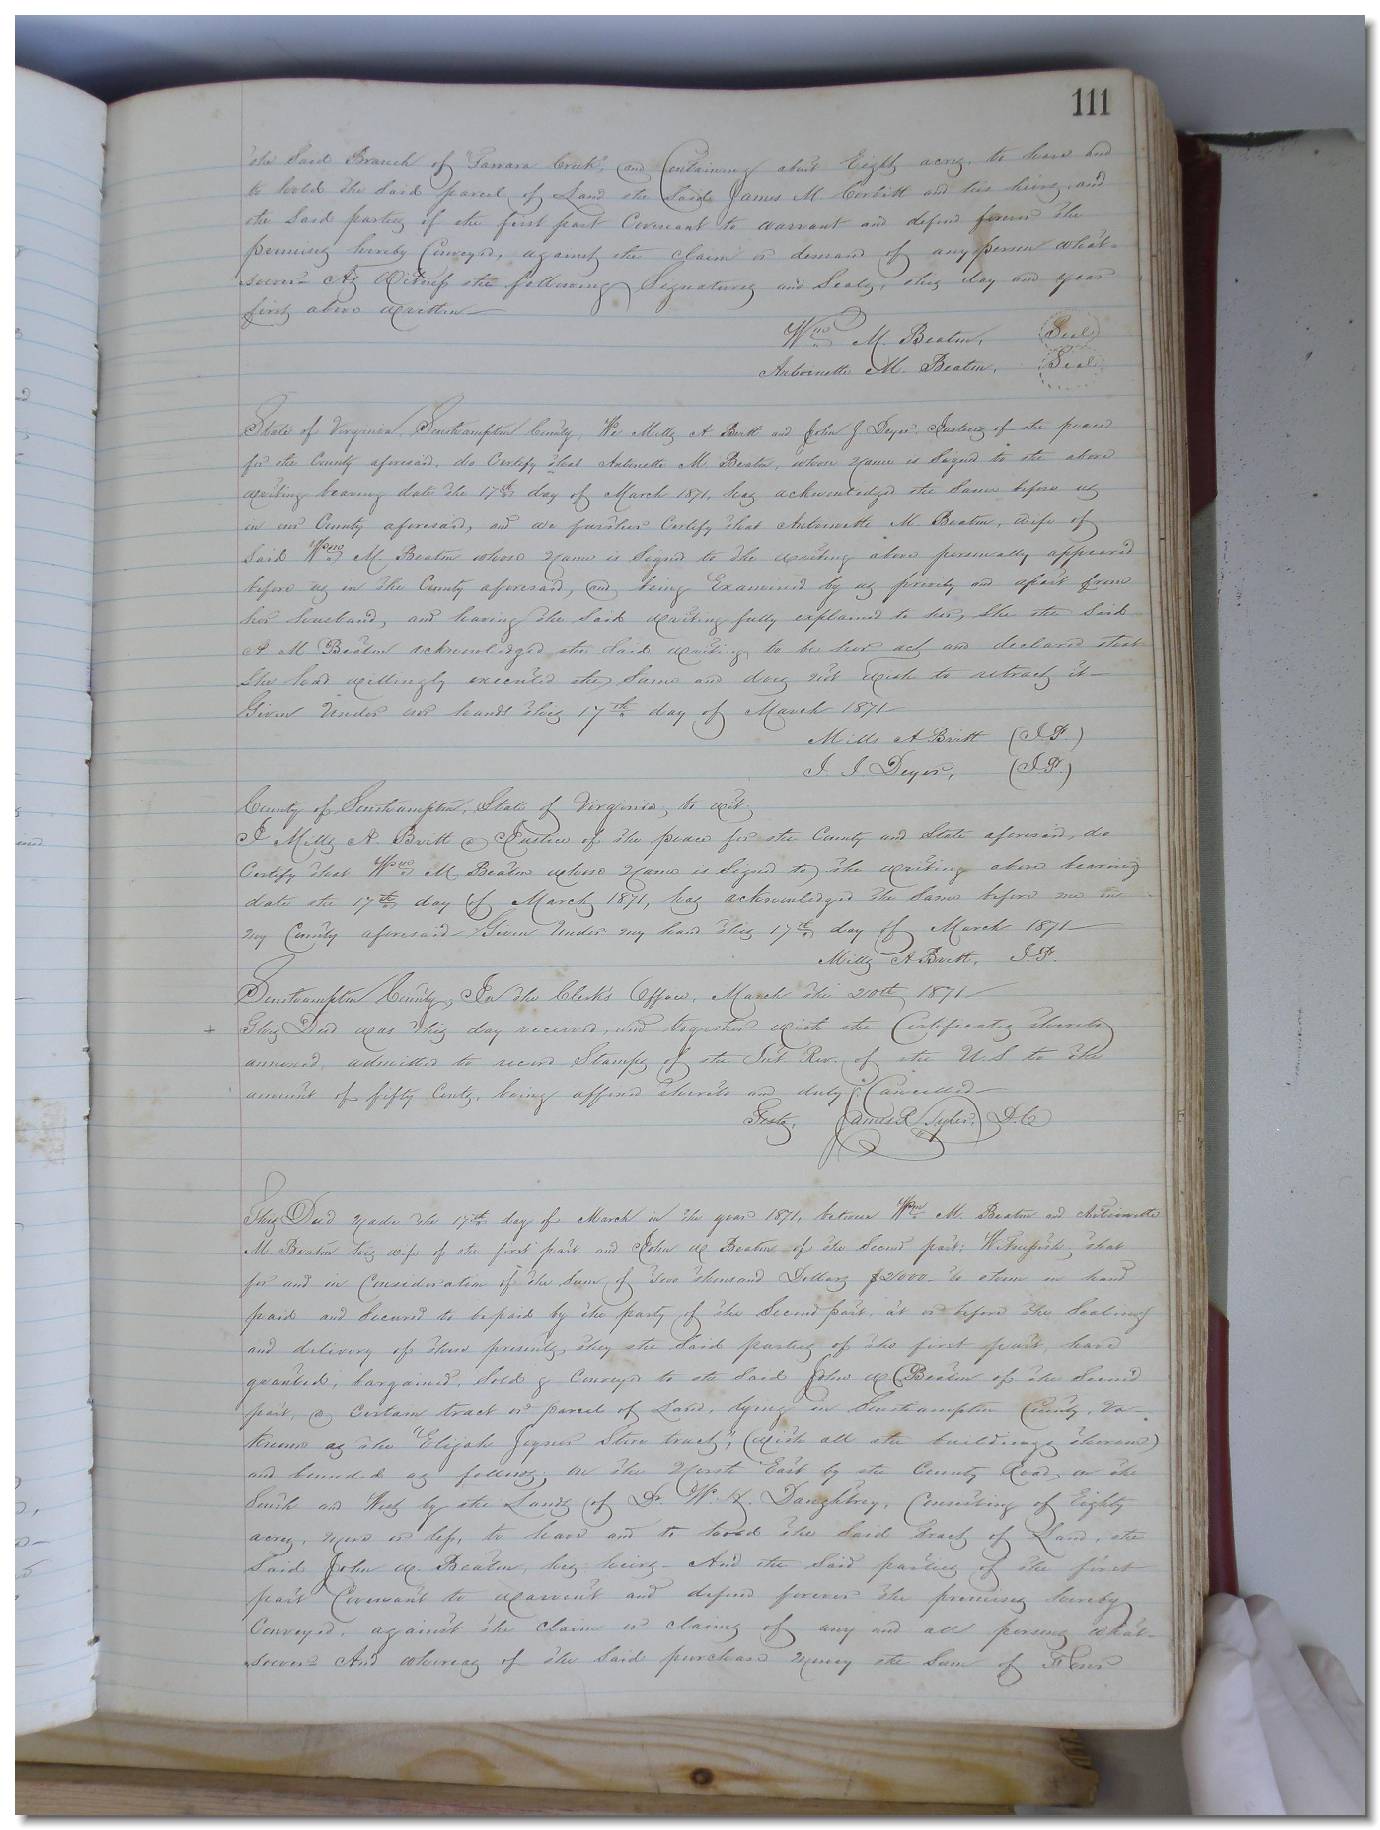 111
the Said Branch of "Tarrara Creek", and Containing about Eighty acres, to have and
to hold the Said parcel of Land the Said James M. Corbitt and his heirs, and
the Said parties of the first part Covenant to warrant and defend forever the
premises hereby Conveyed, against the claim or demand of any person what-
soever As Witness the following Signatures and Seals, this day and year
first above written
Wm M. Beaton, Seal
Antoinette M. Beaton, Seal
State of Virginia, Southampton County, We Mills A Britt and John J Deyer, Justices of the peace
for the County aforesaid, do Certify that Antoinette M. Beaton, whose name is Signed to the above
writing bearing date the 17th day of March 1871, has acknowledged the Same before us
in our County aforesaid, and we further Certify that Antoinette M. Beaton, wife of
Said Wm M. Beaton whose name is Signed to the writing above personally appeared
before us in the County aforesaid, and being Examined by us privily and apart from
her husband, and having the Said writing fully explained to her, She the Said
A M Beaton acknowledged the Said writing to be her act and declared that
She had willingly executed the Same and does not wish to retract it
Given Under our hands this 17th day of March 1871
Mills A Britt (J.P.)
J. J Deyer, (J.P.)
County of Southampton, State of Virginia, to wit
I Mills A. Britt a Justice of the peace for the County and State aforesaid, do
Certify that Wm M. Beaton whose name is Signed to the writing above bearing
date the 17th day of March 1871, has acknowledged the Same before me in
my County aforesaid Given Under my hand this 17th day of March 1871
Mills A Britt, J.P.
Southampton County, In the Clerk's Office, March the 20th 1871
This Deed was this day received, and together with the Certificates thereto
annexed, admitted to record Stamps of the Int. Rev. of the U.S to the
amount of fifty Cents, being affixed thereto and duly Cancelled
Teste, James R Tyler, D.C
This Deed made the 17th day of March in the year 1871, between Wm M. Beaton and Antoinette
M Beaton his wife of the first part and John W Beaton of the Second part: Witnesseth, that
for and in Consideration of the Sum of two thousand Dollars $2000- to them in hand
paid and Secured to be paid by the party of the Second part, at or before the Sealing
and delivery of these presents, they the Said parties of the first part, have
granted, bargained, Sold & Conveyed to the Said John W Beaton of the Second
part, a Certain tract or parcel of Land, lying in Southampton County, Va-
Known as the "Elijah Joyner Store tract", (with all the buildings thereon)
and bounded as follows, on the North East by the County Road, on the
South and West by the Lands of Dr. W. H. Daughtrey, Consisting of Eighty
acres, more or less, to have and to hold the Said tract of Land, the
Said John W. Beaton, his heirs- And the Said parties of the first
part Covenant to warrant and defend forever the premises hereby
Conveyed, against the claim or claims of any and all persons what-
soever And whereas of the Said purchase money the Sum of Four